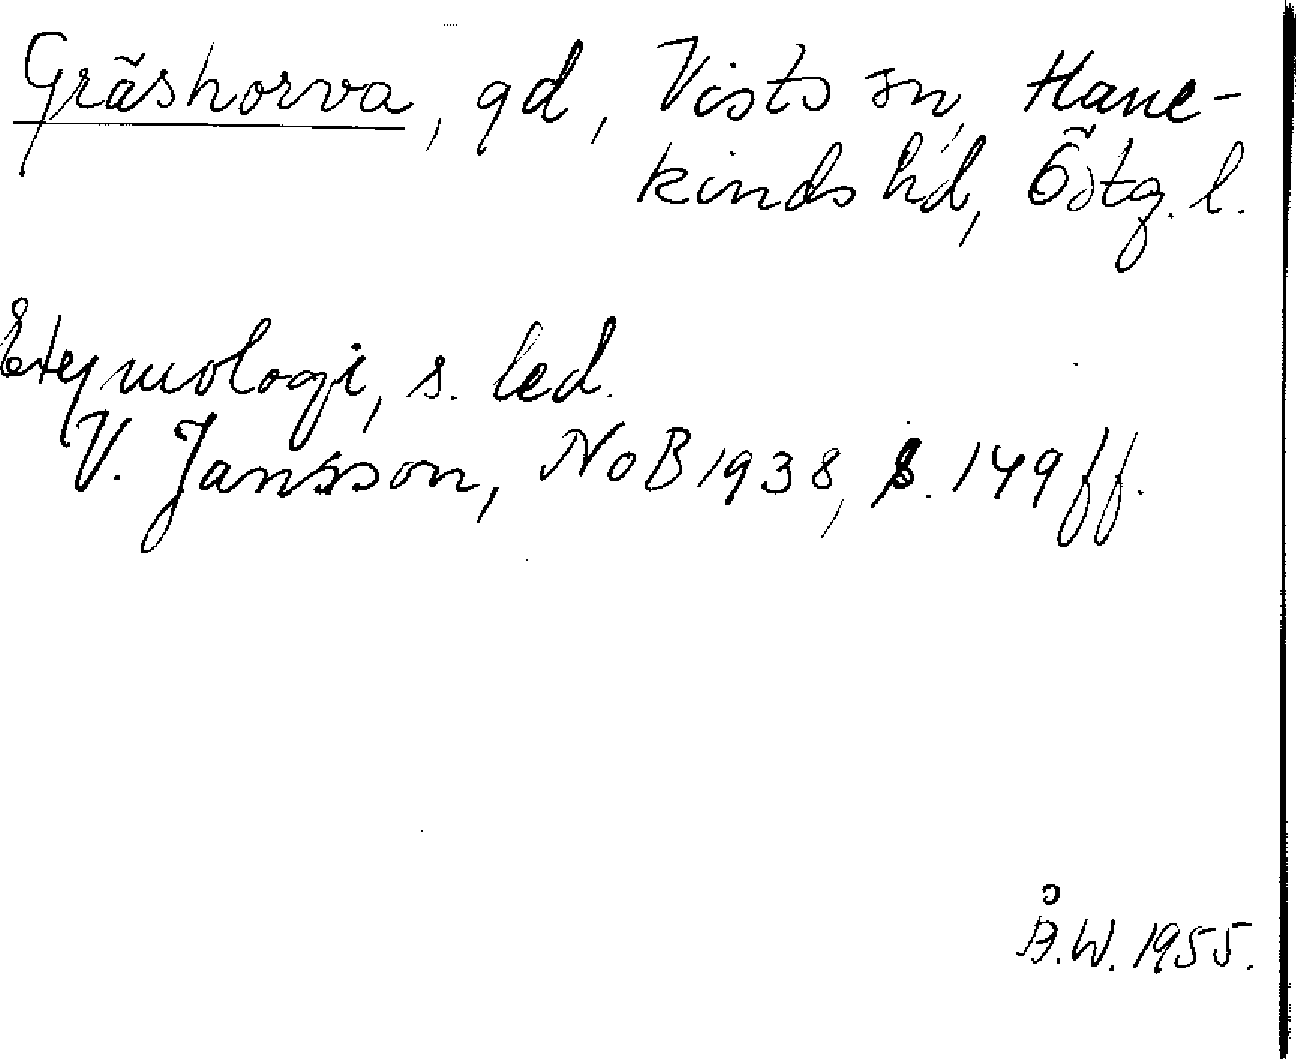 Gräshorva, gd, Vists sn, Hane-
kinds hd, Östg. l.
Etymologi, s. led.
V. Jansson, NoB 1938, s. 149 ff.
Å.W. 1955.